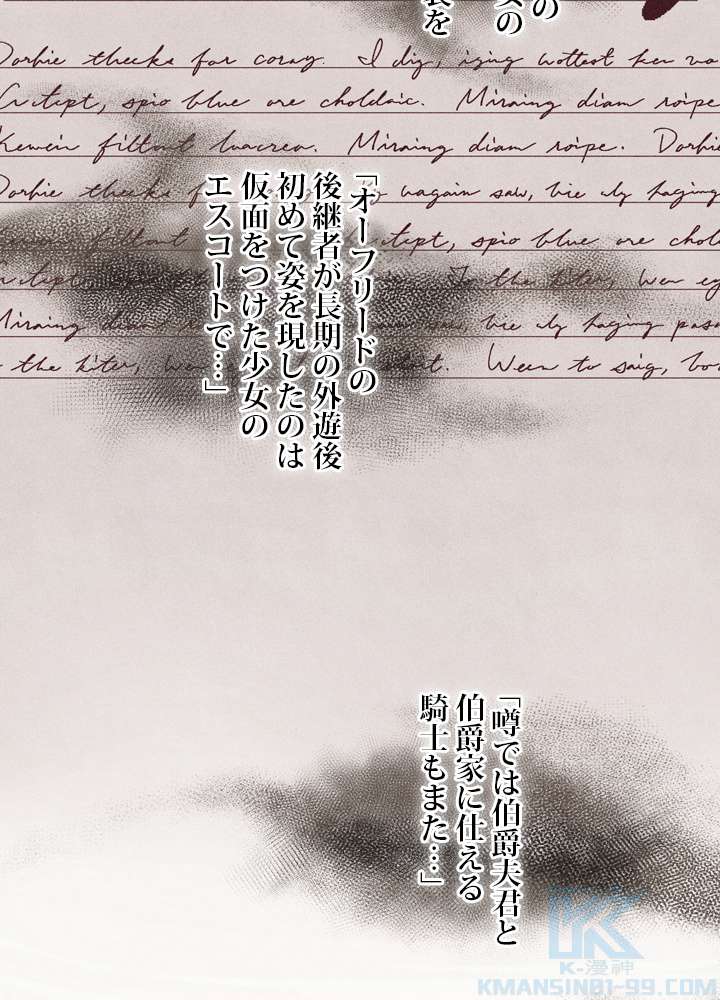 の
女の
衣を
Dorbie thecks for coray. I dig, izing wottest ken va
spio blue ore choldaic. Miraing diam roipe
Kewein filtout luacrea. Miraing diam roipe. Dorbie
Dorbie thecks vagain saw, bie ily haging
filtout citept, spio blue ore chol
To the kiter, wen eg
Miraing saw, bie ily haging pass
o the kiter, we Ween to saig, bo
「オーフリードの
後継者が長期の外遊後
初めて姿を現したのは
仮面をつけた少女の
エスコートで…」
「噂では伯爵夫君と
伯爵家に仕える
騎士もまた…」
K-漫神
KMANSIN01-99.COM